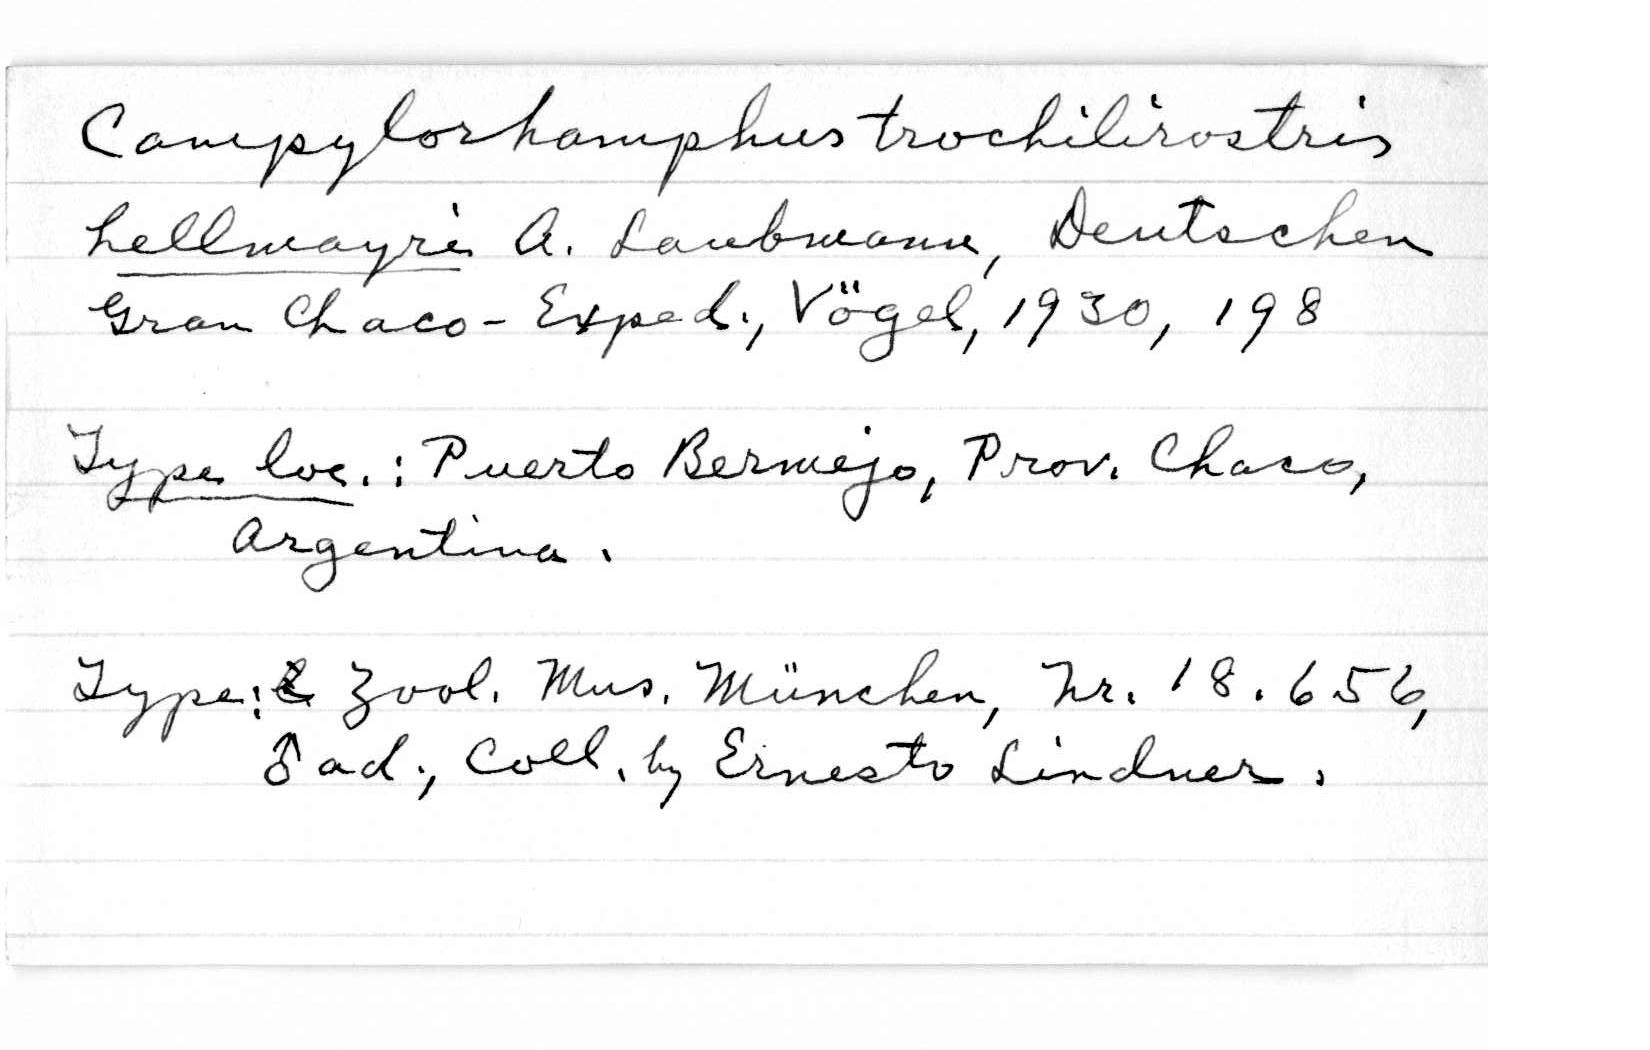 Campylorhamphus trochilirostris
hellmayri A. Laubmann, Deutschen
Gran Chaco-Exped., Vögel, 1930, 198
Type loc.: Puerto Bermejo, Prov. Chaco,
Argentina.
Type: Zool. Mus. München, Nr. 18.656,
♂ ad., coll. by Ernesto Lindner.